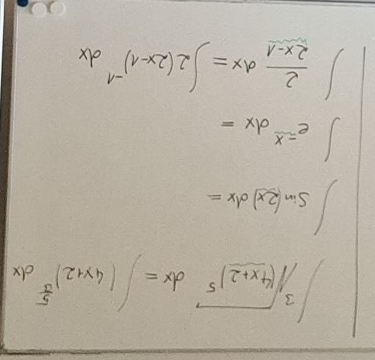 ∫ ∛(4x+2)⁵ dx = ∫ (4x+2)^(5/3) dx
∫ sin (2x) dx =
∫ e^(-x) dx =
∫ 2/(2x-1) dx = ∫ 2(2x-1)^(-1) dx